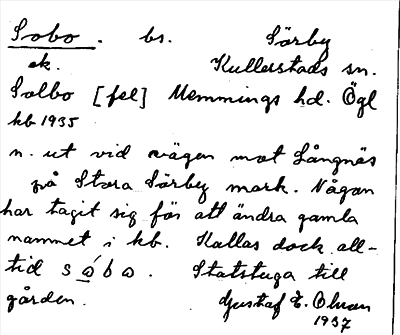 Sobo. bs. Sörby
ek. Kullerstads sn.
Solbo [fel] Memmings hd. Ögl
kb 1935
n. ut vid vägen mot Långnäs
på Stora Sörby mark. Någon
har tagit sig för att ändra gamla
namnet i kb. Kallas dock all-
tid sóbo. Statstuga till
gården. Gustaf E. Ohson
1937